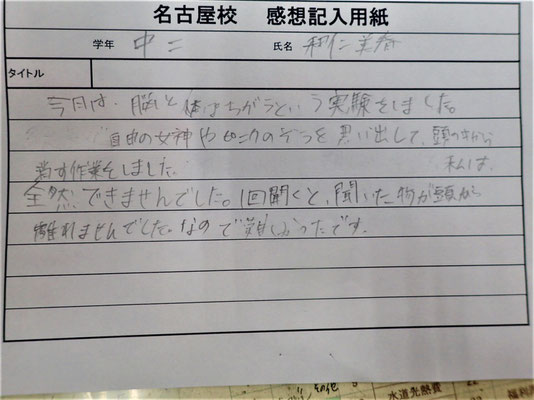 名古屋校 感想記入用紙
学年 中二 氏名 和仁 美香
タイトル
今月は、脳と体はちがうという実験をしました。
自由の女神やピンクのぞうを思い出して、頭の中から
消す作業をしました。 私は、
全然、できませんでした。1回聞くと、聞いた物が頭から
離れませんでした。なので難しかったです。
その他
水道光熱費 22
福利